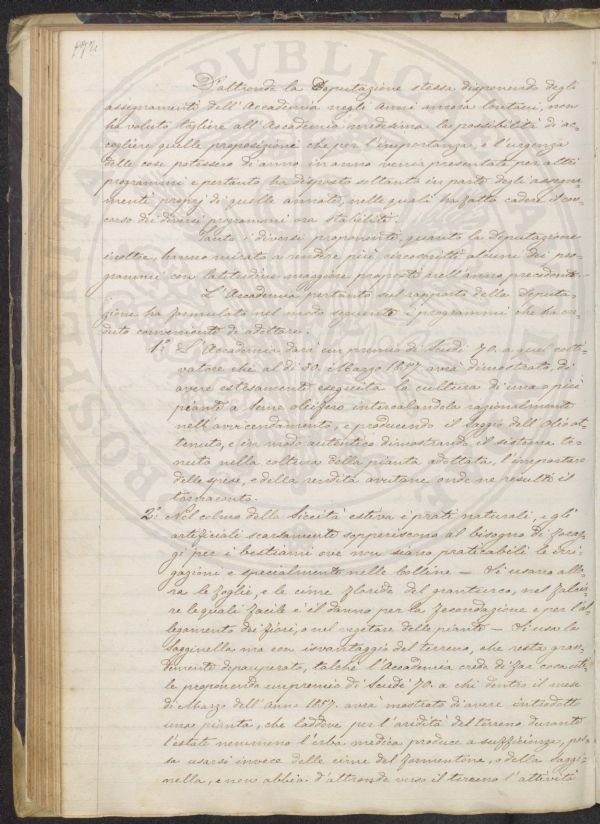 172
D'altronde la Deputazione stessa disponendo degli
assegnamenti dell'Accademia negli anni ancora lontani, non
ha voluto togliere all'Accademia medesima la possibilità di ac-
cogliere quelle proposizioni che per l'importanza, e l'urgenza
delle cose potessero di anno in anno venir presentate per altri
programmi e pertanto ha disposto soltanto in parte degli assegna-
menti proprj di quelle annate, nelle quali ha fatto cadere il con-
corso dei diversi programmi ora stabiliti.
Tanto i diversi proponenti, quanto la Deputazione
inoltre, hanno mirato a rendere più circoscritti alcuni dei pro-
grammi con latitudine maggiore proposti nell'anno precedente.
L'Accademia pertanto sul rapporto della Deputa-
zione ha formulato nel modo seguente i programmi che ha cre-
duto convenienti di adottare.
1.° L'Accademia darà un premio di Scudi 70. a quel colti-
vatore che al dì 30. Marzo 1857 avrà dimostrato, di
avere estesamente eseguita la cultura di una o più
piante a seme oleifero intercalandola razionalmente
nell'avvicendamento, e producendo il saggio dell'Olio ot-
tenuto, e in modo autentico dimostrando il sistema te-
nuto nella coltura della pianta adottata, l'importare
delle spese, e della rendita avutane onde ne resulti il
tornaconto.
2.° Nel colmo della siccità estiva i prati naturali, e gli
artificiali scarsamente sopperiscono al bisogno di forag-
gi per i bestiami ove non siano praticabili le irri-
gazioni e specialmente nelle Colline — Si usano allo-
ra le foglie, e le cime floride del granturco, nel falcia-
re le quali facile è il danno per la fecondazione e per l'al-
legamento dei fiori, o nel vegetare delle piante — Si usa la
sagginella ma con isvantaggio del terreno, che resta gran-
demente depauperato, talchè l'Accademia crede di far cosa uti-
le proponendo un premio di Scudi 70. a chi dentro il mese
di Marzo dell'Anno 1857. avrà mostrato di avere introdotto
una pianta, che laddove per l'aridità del terreno durante
l'estate nemmeno l'erba medica produce a sufficienza, pos-
sa usarsi invece delle cime del formentone, o della saggi-
nella, e non abbia d'altronde verso il terreno l'attività